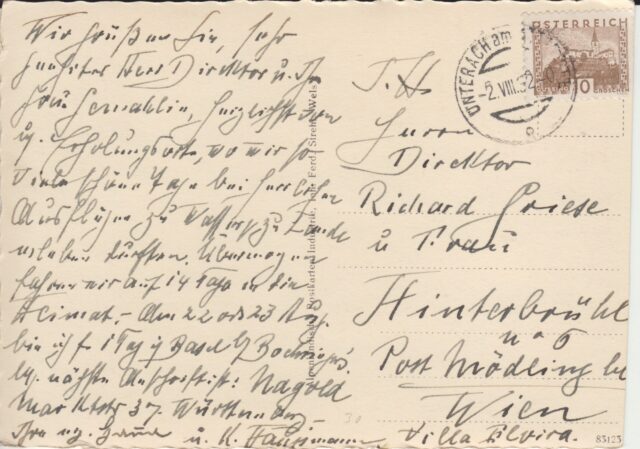 Wir grüßen Sie, sehr
Herr Direktor u. Ihre
Frau Gemahlin, herzlichst vom
Erholungsorte, wo wir so
viele schöne Tage bei herrlichen
Ausflügen zu Wasser u. zu Lande
erleben durften. Übermorgen
fahren wir auf 14 Tage in die
Heimat. - Am 22 od. 23 Aug.
bin ich f. 1 Tag in Basel
nächste Anschrift ist: Nagold
Marktstr 37. Württemberg
Ihre
u. K.
ÖSTERREICH
10 GROSCHEN
UNTERACH am
-2.VIII.32
Herrn
Direktor
Richard Griese
u Frau
Hinterbrühl
n° 6
Post Mödling bei
Wien
Villa Elvira.
Postkarten-Industrie, Ferd. Streb, Wels
30
83123